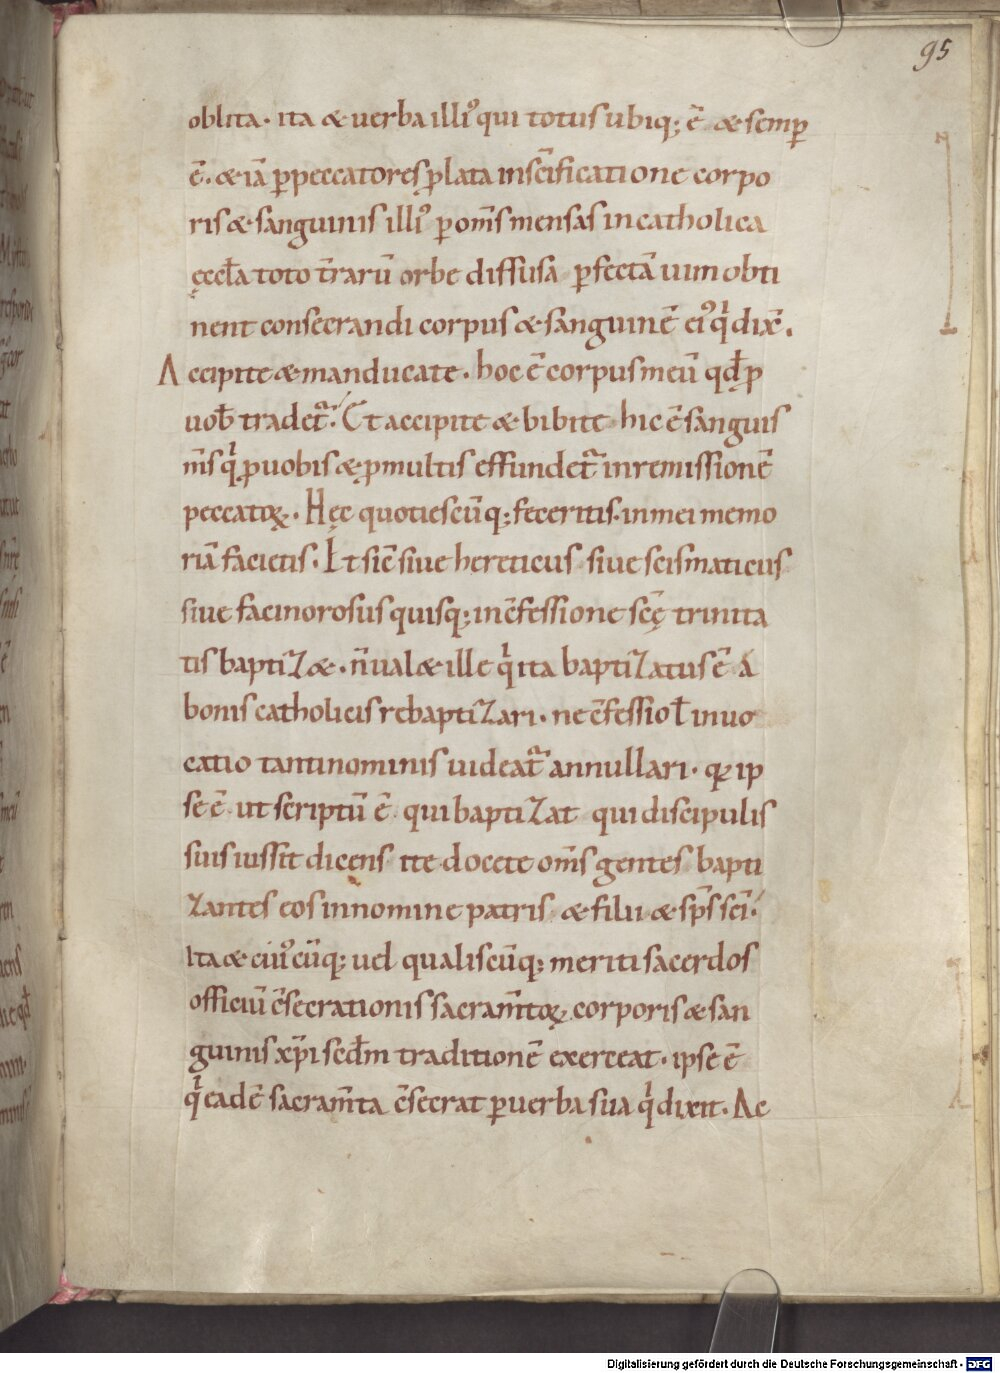 95
oblita. ita & uerba illiꝰ qui totus ubiq; ē & semp̱
ē. & iā p̱ peccatores ꝓlata in scīficatione corpo
ris & sanguinis illiꝰ p̱ om̄s mensas in catholica
ęccƚa toto t̄rarū orbe diffusa p̱fectā uim obti
nent consecrandi corpus & sanguinē eiꝰ qͥ dix̄.
Accipite & manducate. hoc ē corpus meū qđ ꝓ
uoƀ tradet᷑. Et accipite & bibite hic ē sanguis
m̄s qͥ ꝓ uobis & ꝓ multis effundet᷑ in remissionē
peccatoꝝ. Hęc quotiescūq; feceritis. in mei memo
riā facietis. Et sic̄ siue hereticus siue scismaticus
siue facinorosus quisq; in c̄fessione sc̄ę trinita
tis baptiz&. n̄ ual& ille qͥ ita baptizatus ē a
bonis catholicis rebaptizari. ne c̄fessio ƚ inuo
catio tanti nominis uideat᷑ annullari. qꝛ ip
se ē ut scriptū ē qui baptizat qui discipulis
suis iussit dicens ite docete om̄s gentes bapti
zantes eos in nomine patris & filii & sp̄s sc̄i.
Ita & cuiꝰcūq; uel qualiscūq; meriti sacerdos
officiū c̄secrationis sacram̄toꝝ corporis & san
guinis xp̄i secđm traditionē exerceat. ipse ē
qͥ eadē sacram̄ta c̄secrat p̱ uerba sua qͥ dixit. Ac
Digitalisierung gefördert durch die Deutsche Forschungsgemeinschaft - DFG